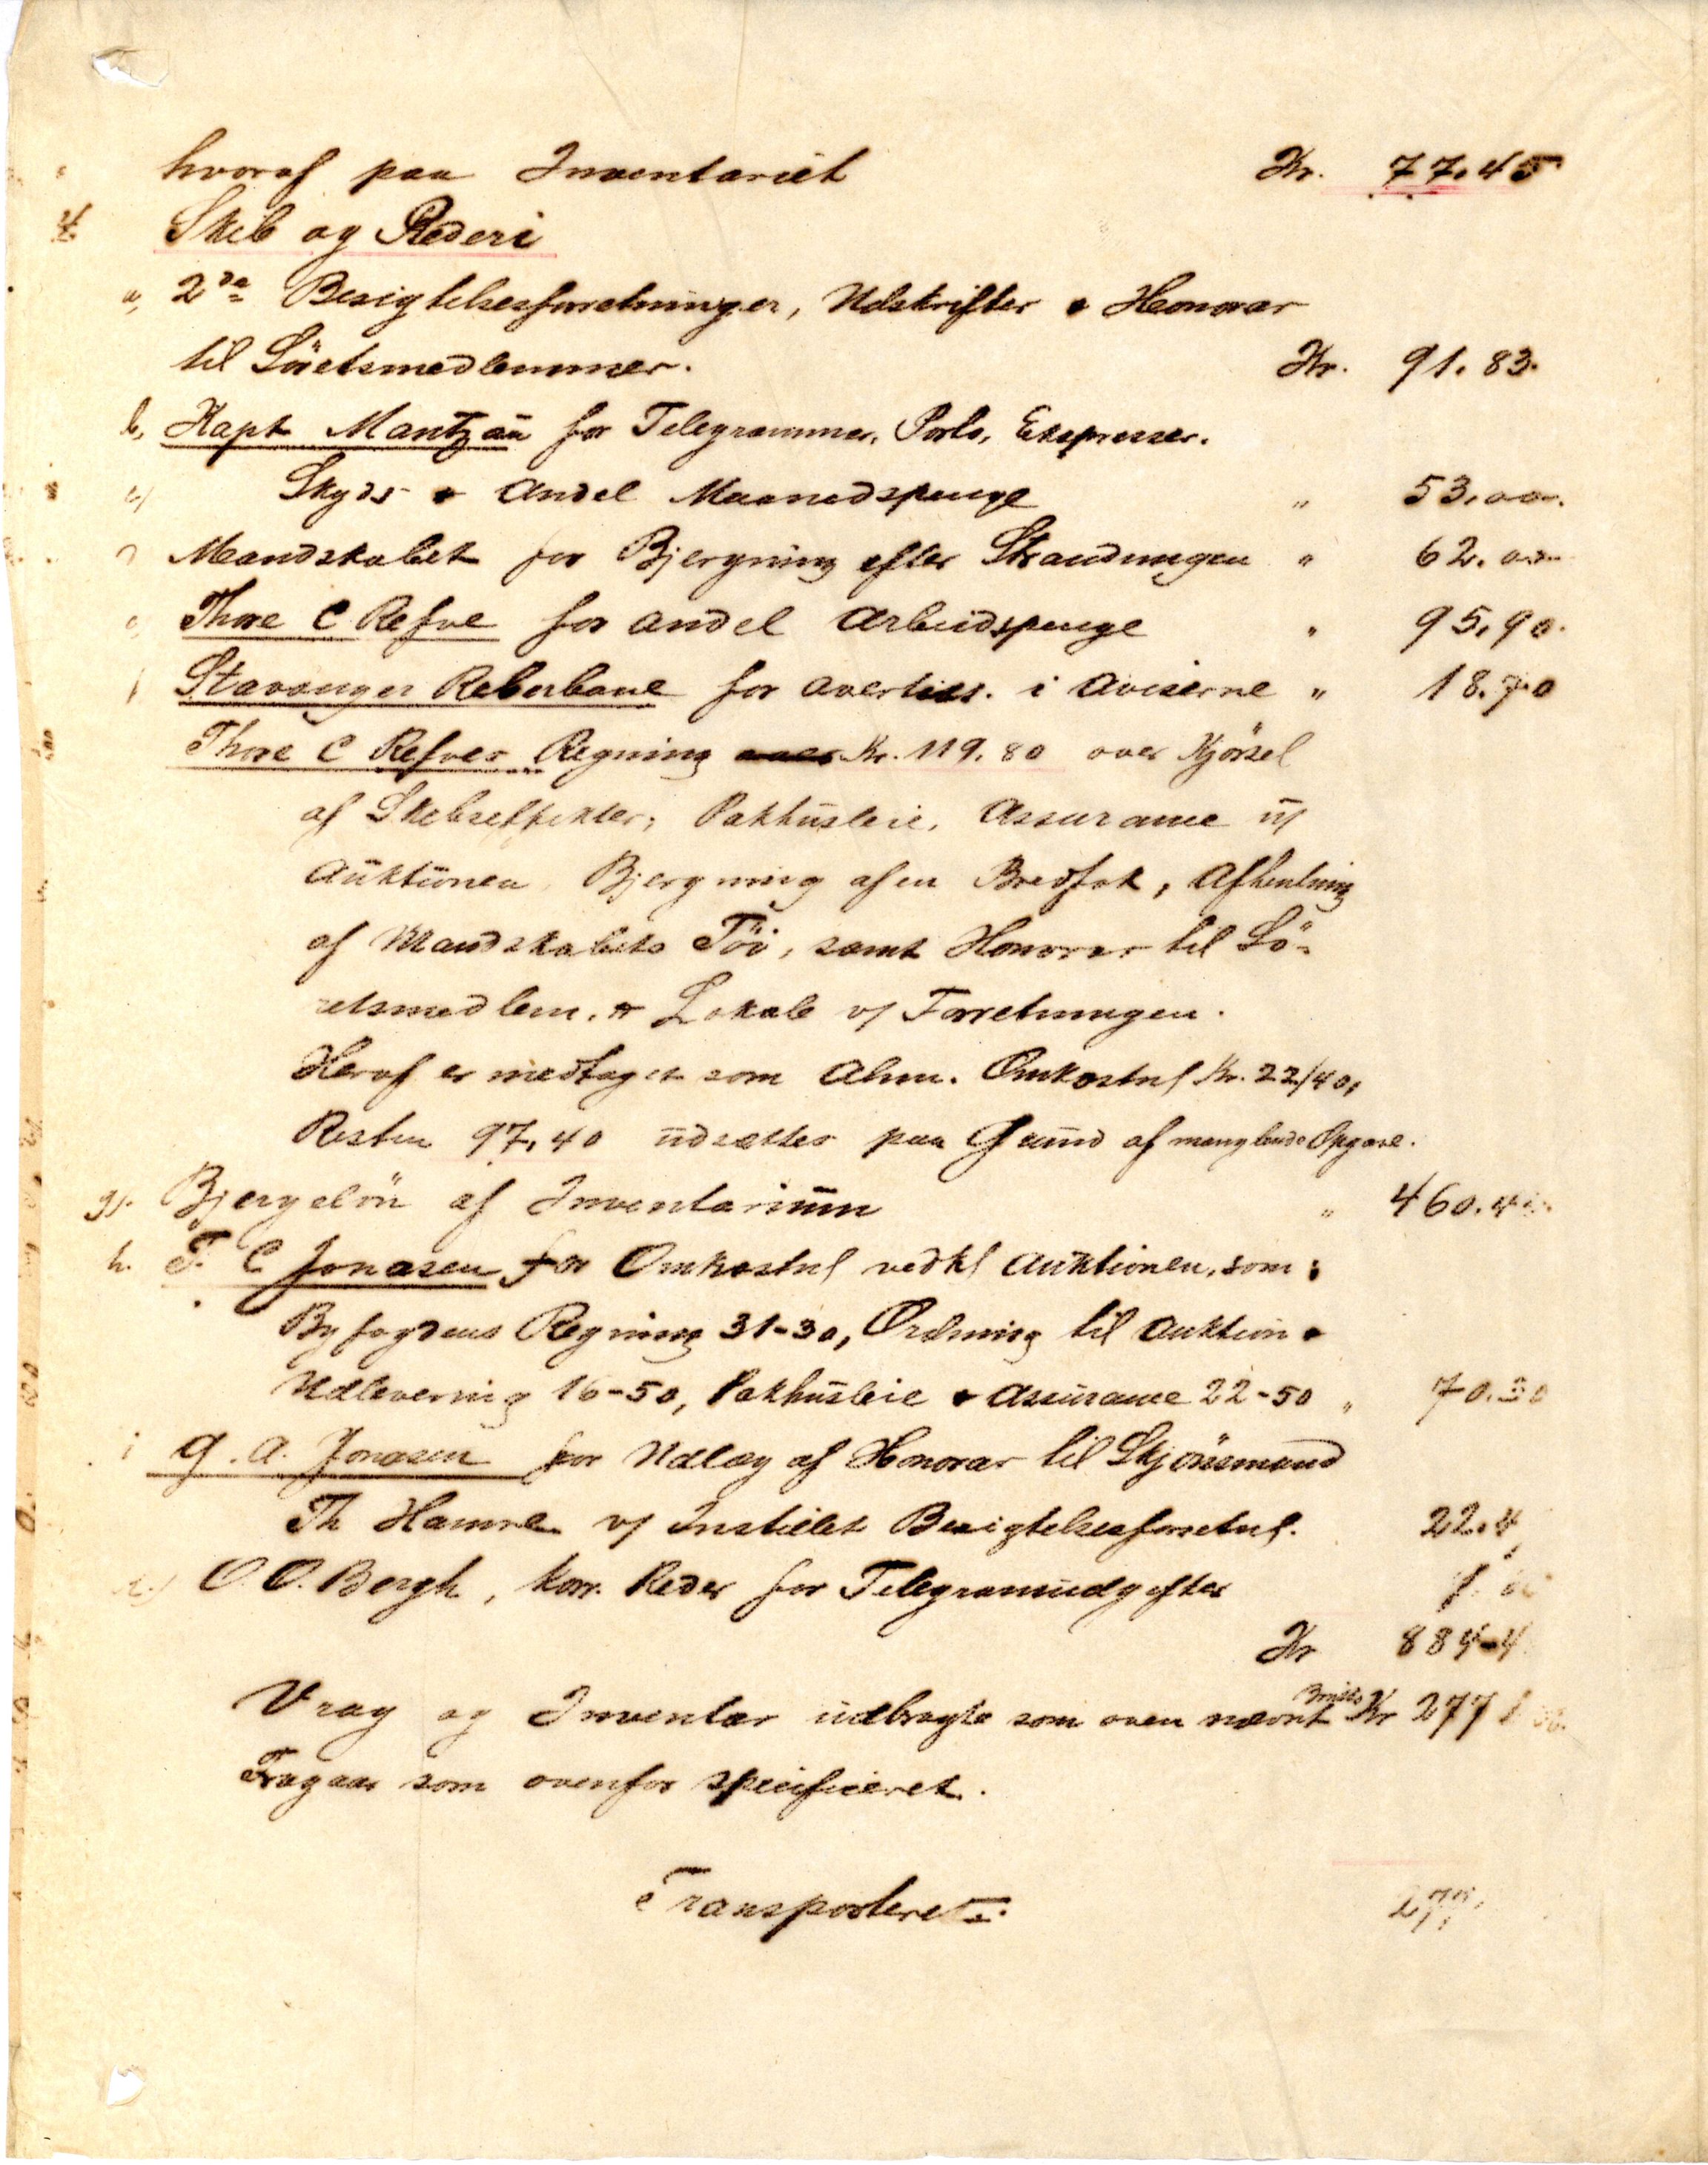 hvoraf paa Inventariet Kr. 77.45
4. Skib og Rederi
a, 2de Besigtelsesforretninger, Udskrifter & Honorar
til Söretsmedlemmer. Kr. 91.83.
b, Kapt Mantzau for Telegrammer, Porto, Expresser.
c, Skyds & Andel Maanedspenge " 53.00.
d Mandskabet for Bjergning efter Strandingen " 62.00
e, Thore C Refve for Andel Arbeidspenge " 95.90.
f Stavanger Reberbane for Avertiss. i Aviserne " 18.70
Thore C Refves Regning Kr. 119.80 over Kjörsel
af Skibseffekter, Pakhusleie, Assurance
Auktionen, Bjergning af en Bredfok, Afhentning
af Mandskabets Töi, samt Honorar til Sö-
retsmedlem. & Lokale v/ Forretningen.
Heraf er medtaget som Alm. Omkostn Kr. 22/40,
Resten 97.40 udsættes paa Grund af manglende Opgave.
g). Bjergelön af Inventarium " 460.
h. T. C Jonasen for Omkostn vedk Auktionen, som:
Byfogdens Regning 31-30, Ordning til Auktion &
Udlevering 16-50, Pakhusleie & Assurance 22-50 " 70.30
i G. A. Jonasen for Udlæg af Honorar til Skjönsmand
Th Hamre v/ Instillet Besigtelsesforretn. 22.4
O. O. Bergh, Korr. Reder for Telegramudgifter
Kr 884-4
Vrag og Inventar udbragte som oven nævnt Brutto Kr 277
Fragaar som ovenfor specificeret.
Transporteret